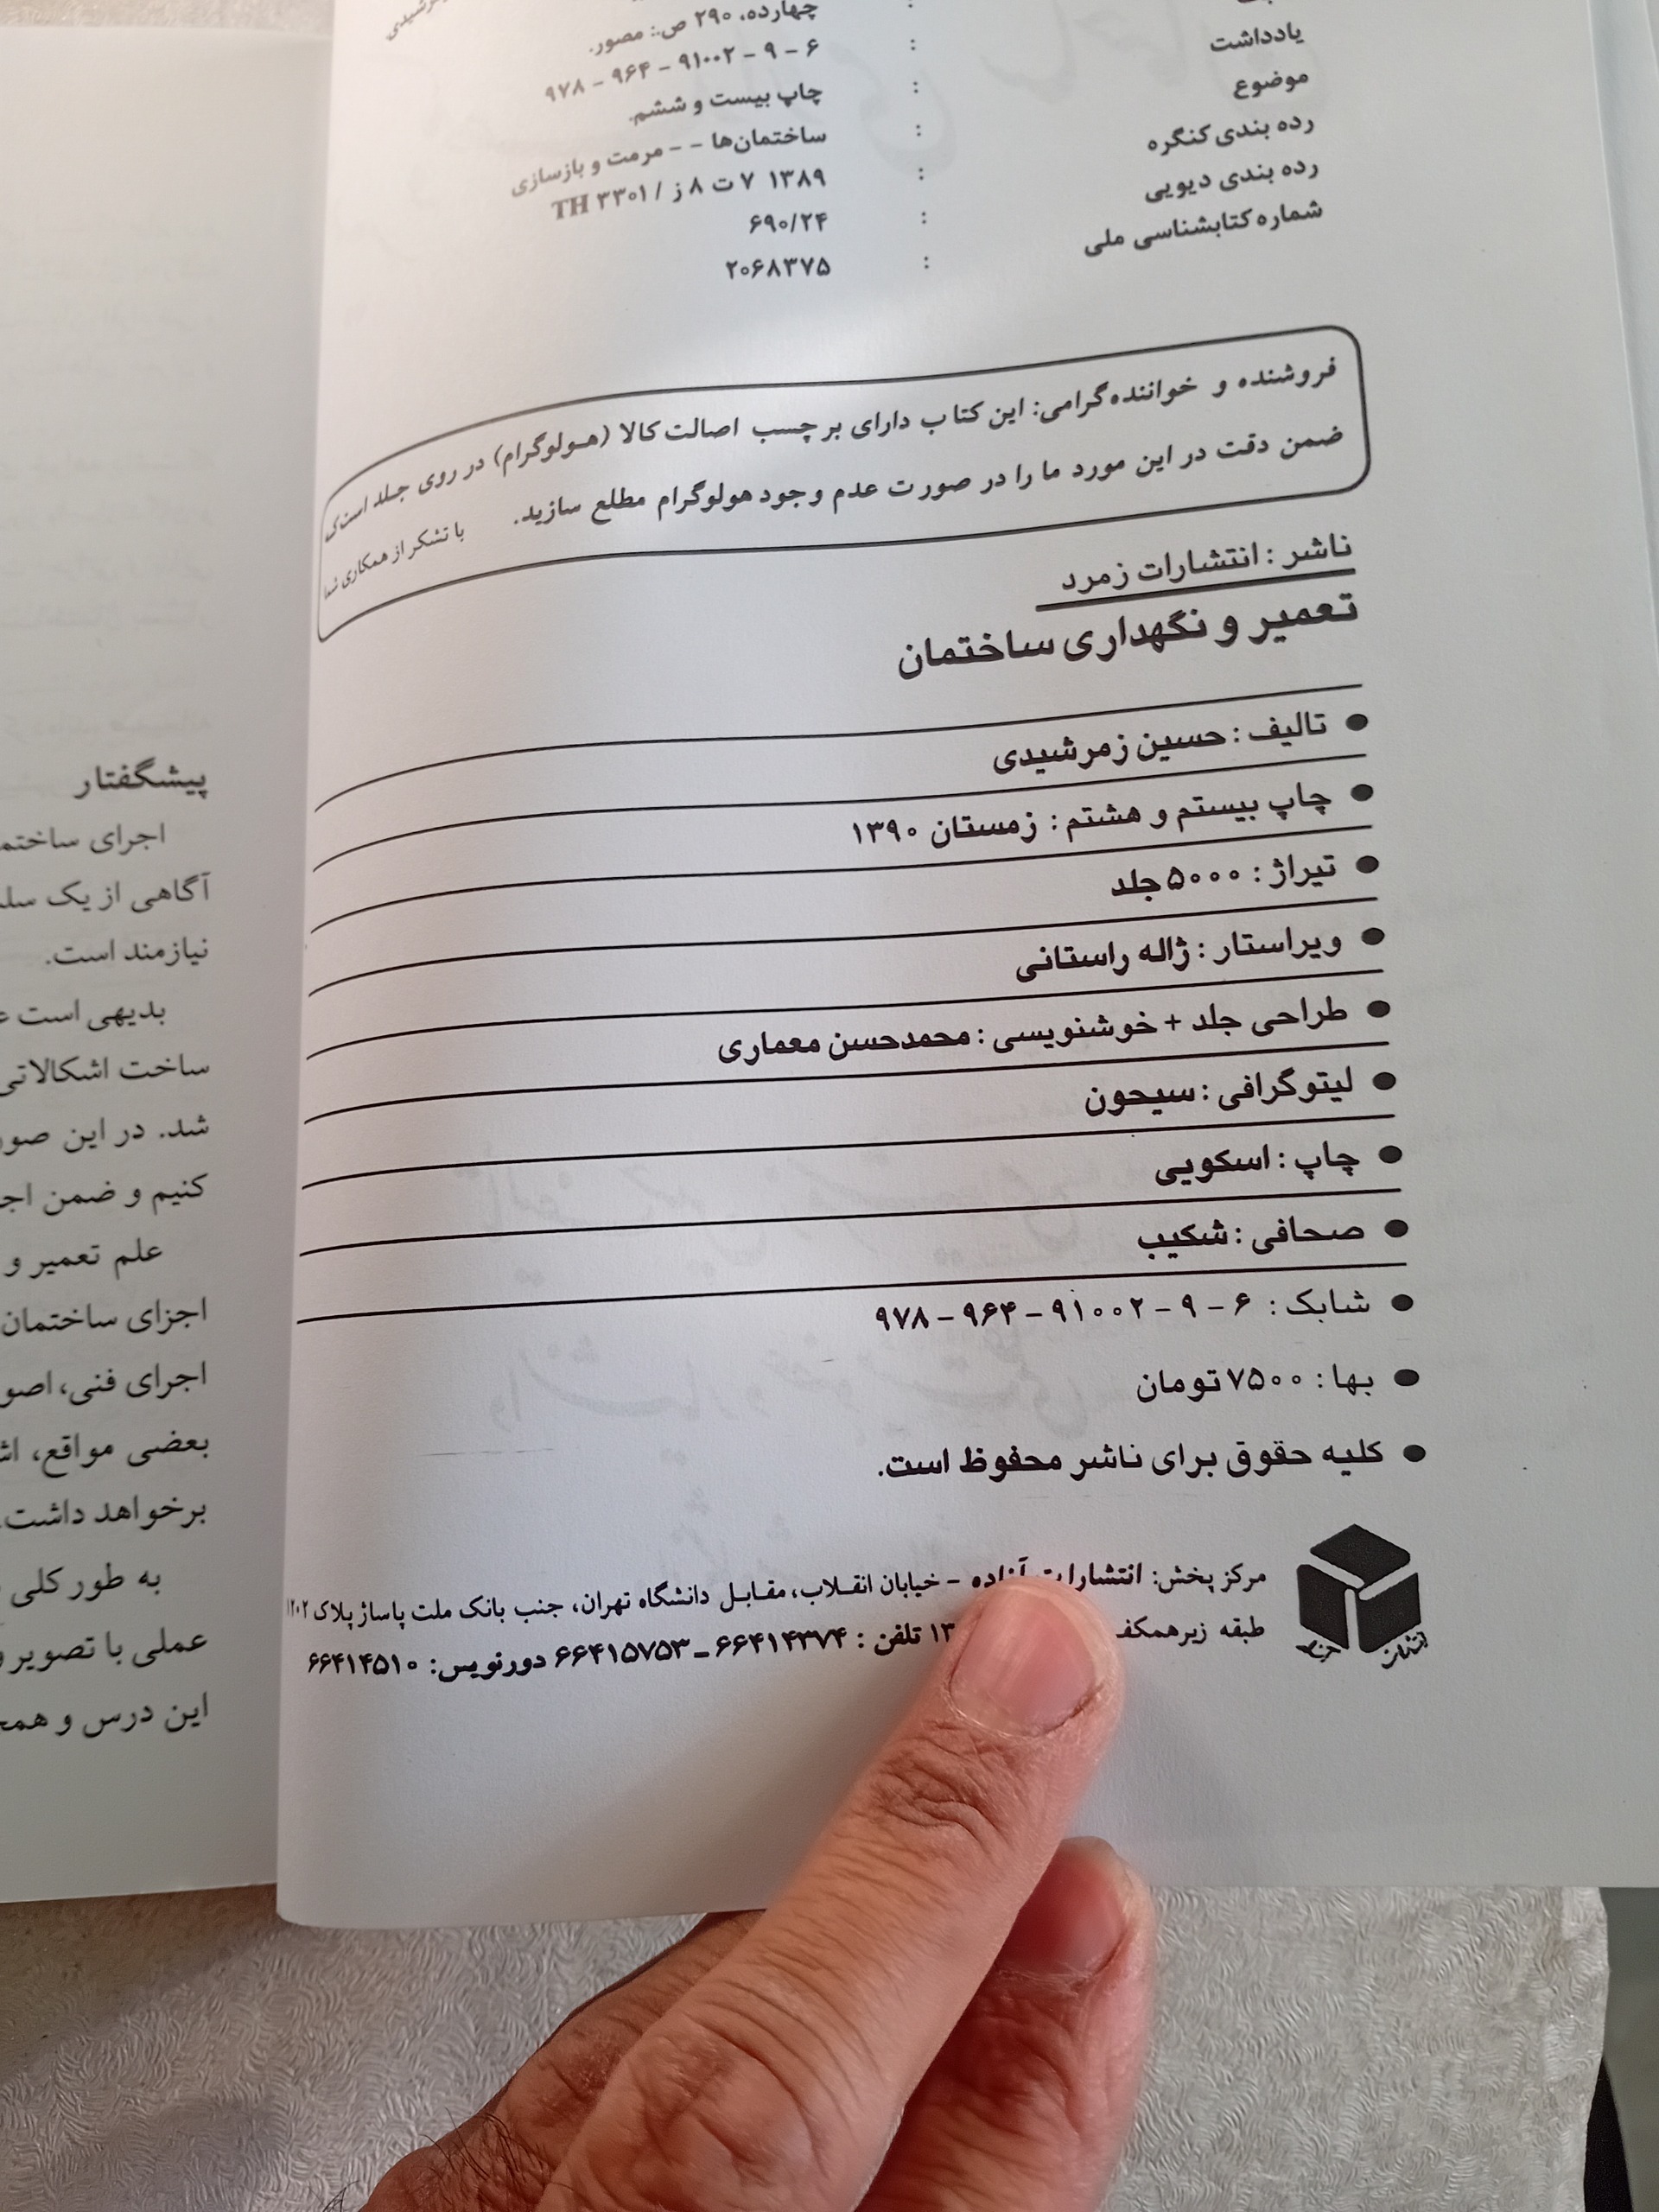 چهارده، ۲۹۰ ص.: مصور.
یادداشت : ۹۷۸ - ۹۶۴ - ۹۱۰۰۲ - ۹ - ۶
موضوع : چاپ بیست و ششم.
رده بندی کنگره : ساختمان‌ها - - مرمت و بازسازی
رده بندی دیویی : TH ۳۳۰۱ / ز ۸ ت ۷ ۱۳۸۹
شماره کتابشناسی ملی : ۶۹۰/۲۴
: ۲۰۶۸۳۷۵
فروشنده و خواننده گرامی: این کتاب دارای برچسب اصالت کالا (هولوگرام) در روی جلد است که
ضمن دقت در این مورد ما را در صورت عدم وجود هولوگرام مطلع سازید. با تشکر از همکاری شما
ناشر : انتشارات زمرد
تعمیر و نگهداری ساختمان
● تالیف : حسین زمرشیدی
● چاپ بیستم و هشتم : زمستان ۱۳۹۰
● تیراژ : ۵۰۰۰ جلد
● ویراستار : ژاله راستانی
● طراحی جلد + خوشنویسی : محمدحسن معماری
● لیتوگرافی : سیحون
● چاپ : اسکویی
● صحافی : شکیب
● شابک : ۶ - ۹ - ۹۱۰۰۲ - ۹۶۴ - ۹۷۸
● بها : ۷۵۰۰ تومان
● کلیه حقوق برای ناشر محفوظ است.
مرکز پخش: انتشارات آزاده - خیابان انقلاب، مقابل دانشگاه تهران، جنب بانک ملت پاساژ پلاک ۱۲۰۲
طبقه زیرهمکف تلفن : ۶۶۴۱۴۳۷۴ ـ ۶۶۴۱۵۷۵۳ دورنویس: ۶۶۴۱۴۵۱۰
انتشارات آزاده
پیشگفتار
اجرای
آگاهی از یک
نیازمند است.
بدیهی است
ساخت اشکالاتی
شد. در این
کنیم و ضمن
علم تعمیر و
اجزای ساختمان
اجرای فنی،
بعضی مواقع،
برخواهد داشت.
به طور کلی
عملی با تصویر
این درس و